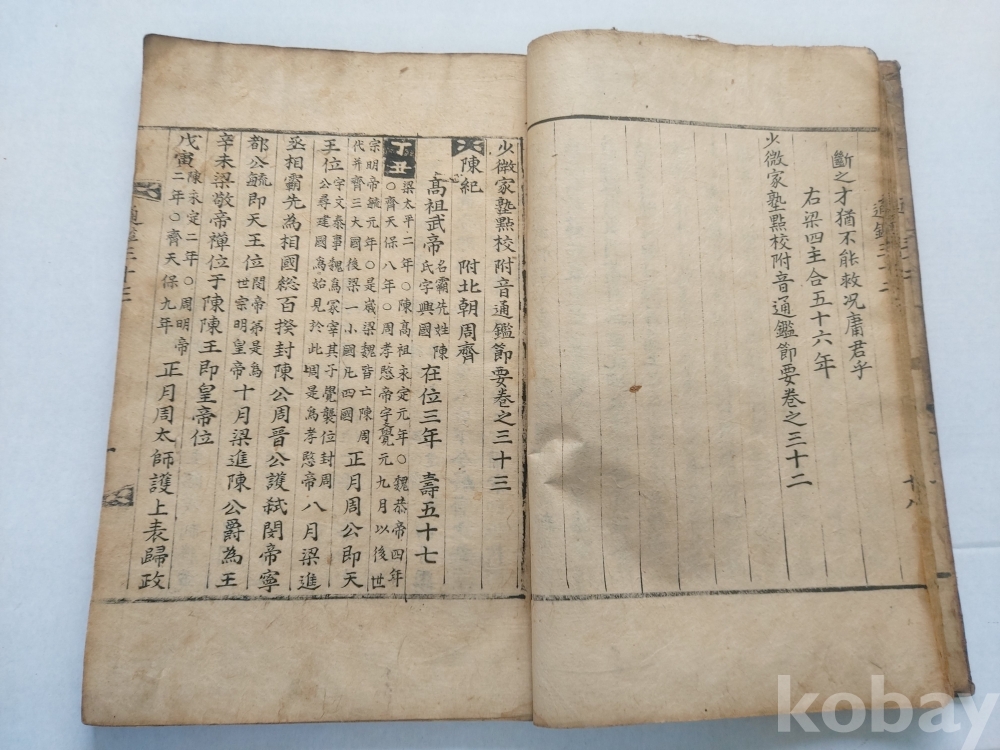 斷之才猶不能救况庸君乎
右梁四主合五十六年
少微家塾點校附音通鑑節要卷之三十二
少微家塾點校附音通鑑節要卷之三十三
陳紀 附北朝周齊
高祖武帝 名霸先姓陳氏字興國 在位三年 壽五十七
丁丑 梁太平二年○陳高祖永定元年○魏恭帝四年○齊天保八年○周孝愍帝字覺元九月以後世
宗明帝毓元年○是歲梁魏皆亡陳周代并齊三大國後梁一小國凡四國 正月周公即天
王位 宇文泰事魏爲冢宰其子覺襲位封周公尋建國爲始見於此堈是爲孝愍帝 八月梁進
丞相霸先為相國総百揆封陳公周晉公護弑閔帝寧
都公毓即天王位 閔帝弟是爲世宗明皇帝 十月梁進陳公爵為王
辛未梁敬帝禅位于陳陳王即皇帝位
戊寅 陳永定二年○周明帝二年○齊天保九年 正月周太師護上表歸政
通鑑三十二
十八
kobay